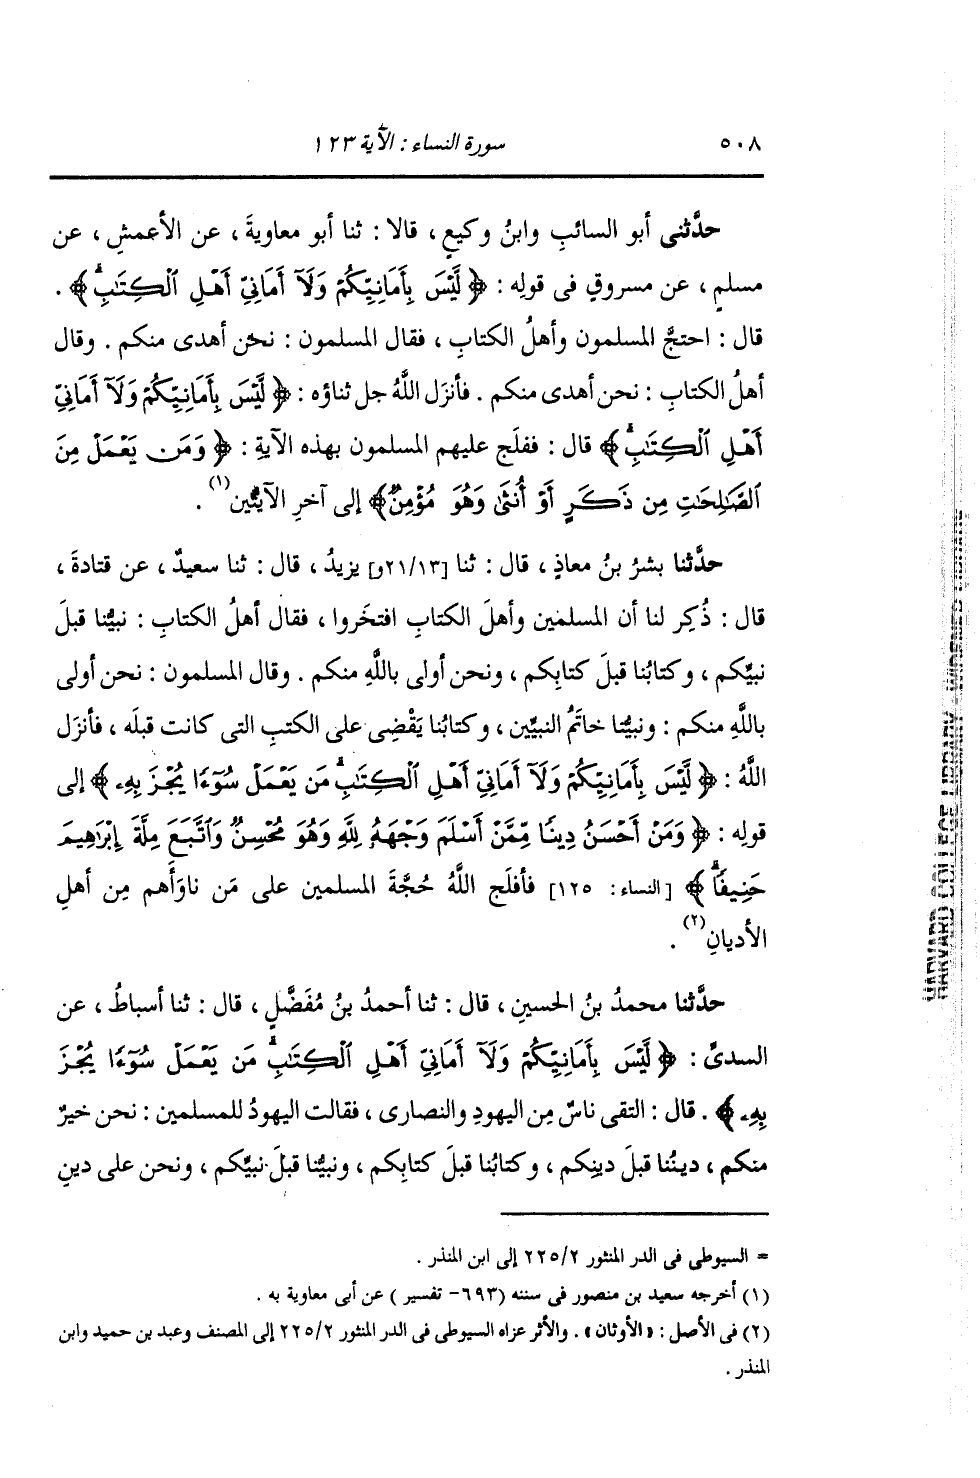 ٥٠٨ سورة النساء : الآية ١٢٣
حدَّثنى أبو السائبِ وابنُ وكيعٍ ، قالا : ثنا أبو معاويةَ ، عن الأعمشِ ، عن
مسلمٍ ، عن مسروقٍ فى قولِه : ﴿ لَّيْسَ بِأَمَانِيِّكُمْ وَلَآ أَمَانِيِّ أَهْلِ ٱلْكِتَٰبِۗ ﴾ .
قال : احتجَّ المسلمون وأهلُ الكتابِ ، فقال المسلمون : نحن أهدى منكم . وقال
أهلُ الكتابِ : نحن أهدى منكم . فأنزل اللَّهُ جل ثناؤه : ﴿ لَّيْسَ بِأَمَانِيِّكُمْ وَلَآ أَمَانِيِّ
أَهْلِ ٱلْكِتَٰبِۗ ﴾ قال : ففلَج عليهم المسلمون بهذه الآيةِ : ﴿ وَمَن يَعْمَلْ مِنَ
ٱلصَّٰلِحَٰتِ مِن ذَكَرٍ أَوْ أُنثَىٰ وَهُوَ مُؤْمِنٌ ﴾ إلى آخرِ الآيتين(١) .
حدَّثنا بشرُ بنُ معاذٍ ، قال : ثنا [٢١/١٣و] يزيدُ ، قال : ثنا سعيدٌ ، عن قتادةَ ،
قال : ذُكِر لنا أن المسلمين وأهلَ الكتابِ افتخَروا ، فقال أهلُ الكتابِ : نبيُّنا قبلَ
نبيِّكم ، وكتابُنا قبلَ كتابِكم ، ونحن أولى باللَّهِ منكم . وقال المسلمون : نحن أولى
باللَّهِ منكم : ونبيُّنا خاتَمُ النبيِّين ، وكتابُنا يَقْضِى على الكتبِ التى كانت قبلَه ، فأنزل
اللَّهُ : ﴿ لَّيْسَ بِأَمَانِيِّكُمْ وَلَآ أَمَانِيِّ أَهْلِ ٱلْكِتَٰبِۗ مَن يَعْمَلْ سُوٓءًا يُجْزَ بِهِۦ ﴾ إلى
قولِه : ﴿ وَمَنْ أَحْسَنُ دِينًا مِّمَّنْ أَسْلَمَ وَجْهَهُۥ لِلَّهِ وَهُوَ مُحْسِنٌ وَٱتَّبَعَ مِلَّةَ إِبْرَٰهِيمَ
حَنِيفًاۗ ﴾ [ النساء : ١٢٥] فأفلَج اللَّهُ حُجَّةَ المسلمين على مَن ناوَأَهم مِن أهلِ
الأديانِ(٢) .
حدَّثنا محمدُ بنُ الحسينِ ، قال : ثنا أحمدُ بنُ مُفَضَّلٍ ، قال : ثنا أسباطُ ، عن
السدىِّ : ﴿ لَّيْسَ بِأَمَانِيِّكُمْ وَلَآ أَمَانِيِّ أَهْلِ ٱلْكِتَٰبِۗ مَن يَعْمَلْ سُوٓءًا يُجْزَ
بِهِۦ ﴾ . قال : التقى ناسٌ مِن اليهودِ والنصارى ، فقالت اليهودُ للمسلمين : نحن خيرٌ
منكم ، دينُنا قبلَ دينِكم ، وكتابُنا قبلَ كتابِكم ، ونبيُّنا قبلَ نبيِّكم ، ونحن على دينِ
= السيوطى فى الدر المنثور ٢٢٥/٢ إلى ابن المنذر .
(١) أخرجه سعيد بن منصور فى سننه (٦٩٣ - تفسير ) عن أبى معاوية به .
(٢) فى الأصل : «الأوثان» . والأثر عزاه السيوطى فى الدر المنثور ٢٢٥/٢ إلى المصنف وعبد بن حميد وابن
المنذر .
HARVARD COLLEGE LIBRARY